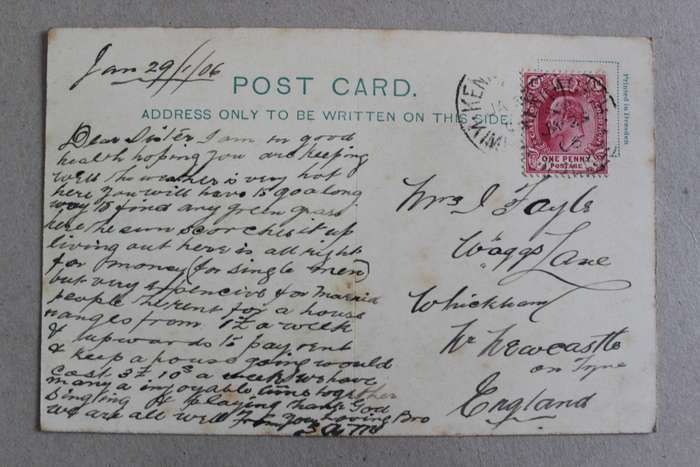 Jan 29/1/06
POST CARD.
ADDRESS ONLY TO BE WRITTEN ON THIS SIDE.
Printed in Dresden
ONE PENNY
POSTAGE
Dear Sister I am in good
health hoping you are keeping
well the weather is very hot
here you will have to go a long
way to find any green grass
here the sun scorches it up
living out here is all right
for money (for single men)
but very expencive for married
people the rent for a house
ranges from 1£ a week
& upwards to pay rent
& keep a house going would
cost 3£ 10s a week we have
many a injoyable time together
singling & playing thank God
we are all well From your loving Bro
Mrs J Tayls
Waggs Lane
Whickham
Nr Newcastle
on Tyne
England